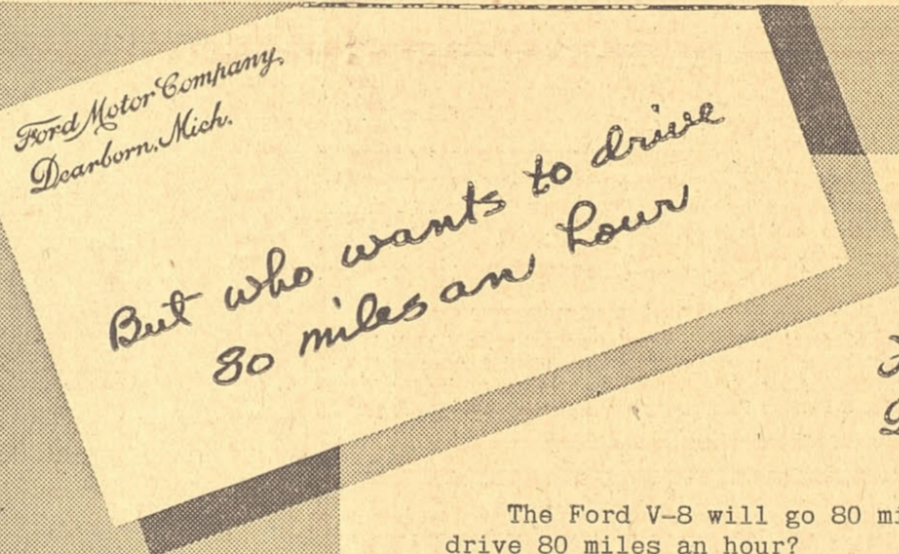 Ford Motor Company,
Dearborn, Mich.
But who wants to drive
80 miles an hour
The Ford V-8 will go 80 mi
drive 80 miles an hour?